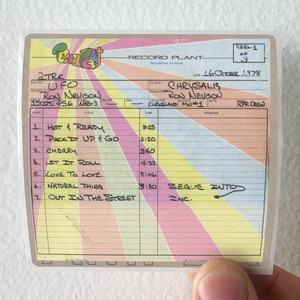 RECORD PLANT
REEL 1
OF
3
2TRK
16 OCTOBER 1978
UFO
CHRYSALIS
RON NEVISON
RON NEVISON
CLEVELAND
TITLE
1. HOT & READY 3:15
2. PACK IT UP & GO 3:20
3. CHERRY 3:40
4. LET IT ROLL 4:33
5. LOVE TO LOVE 8:06
6. NATURAL THING 3:30 SEGUE INTO
7. OUT IN THE STREET INC.